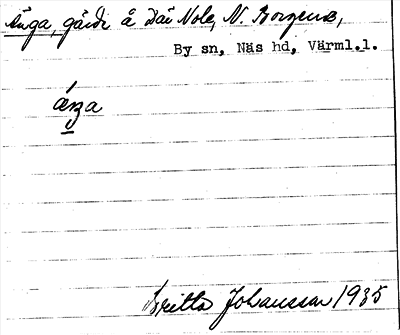 Änga, gärde å Där Nole, N. Borgeus,
By sn, Näs hd, Värml.l.
Britta Johansson 1935